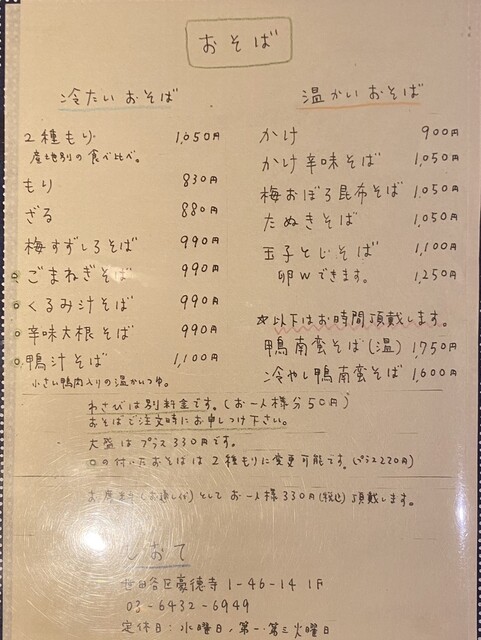 おそば
冷たいおそば
2種もり 1,050円
産地別の食べ比べ。
もり 830円
ざる 880円
梅すずしろそば 990円
○ごまねぎそば 990円
○くるみ汁そば 990円
○辛味大根そば 990円
○鴨汁そば 1,100円
小さい鴨肉入りの温かいつゆ。
温かいおそば
かけ 900円
かけ辛味そば 1,050円
梅おぼろ昆布そば 1,050円
たぬきそば 1,050円
玉子とじそば 1,100円
卵Wできます。 1,250円
※以下はお時間頂戴します。
鴨南蛮そば(温) 1,750円
冷やし鴨南蛮そば 1,600円
わさびは別料金です。(お一人様分50円)
おそばご注文時にお申しつけ下さい。
大盛はプラス330円です。
○の付いたおそばは2種もりに変更可能です。(プラス220円)
お席料(お通し代)としてお一人様330円(税込)頂戴します。
しおて
世田谷区豪徳寺1-46-14 1F
03-6432-6949
定休日:水曜日、第一・第三火曜日